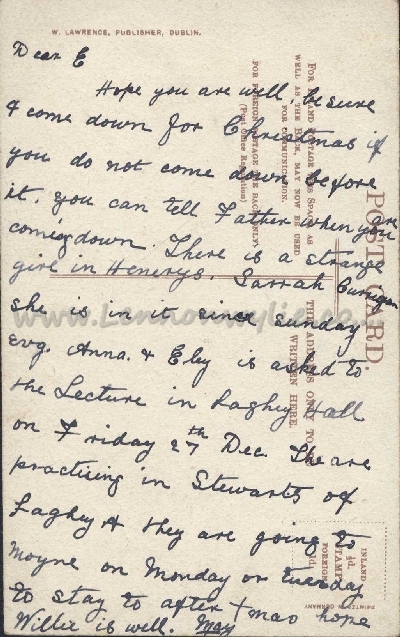 W. LAWRENCE, PUBLISHER, DUBLIN.
Dear E
Hope you are well, be sure
& come down for Christmas if
you do not come down before
it, you can tell Father when you are
coming down. There is a strange
girl in Henerys. Sarrah
she is in it since sunday
evg. Anna. & Eby is asked to
the Lecture in Laghy Hall
on Friday 27th Dec. The are
practicing in Stewarts of
Laghy & they are going to
Moyne on Monday or tuesday
to stay to after Xmas hope
Willie is well. May
POST CARD.
FOR INLAND POSTAGE THIS SPACE, AS
WELL AS THE BACK, MAY NOW BE USED
FOR COMMUNICATION.
FOR FOREIGN POSTAGE THE BACK ONLY.
(Post Office Regulation)
THE ADDRESS ONLY TO BE
WRITTEN HERE.
INLAND
½d.
STAMP
FOREIGN
1d.
PRINTED IN GERMANY